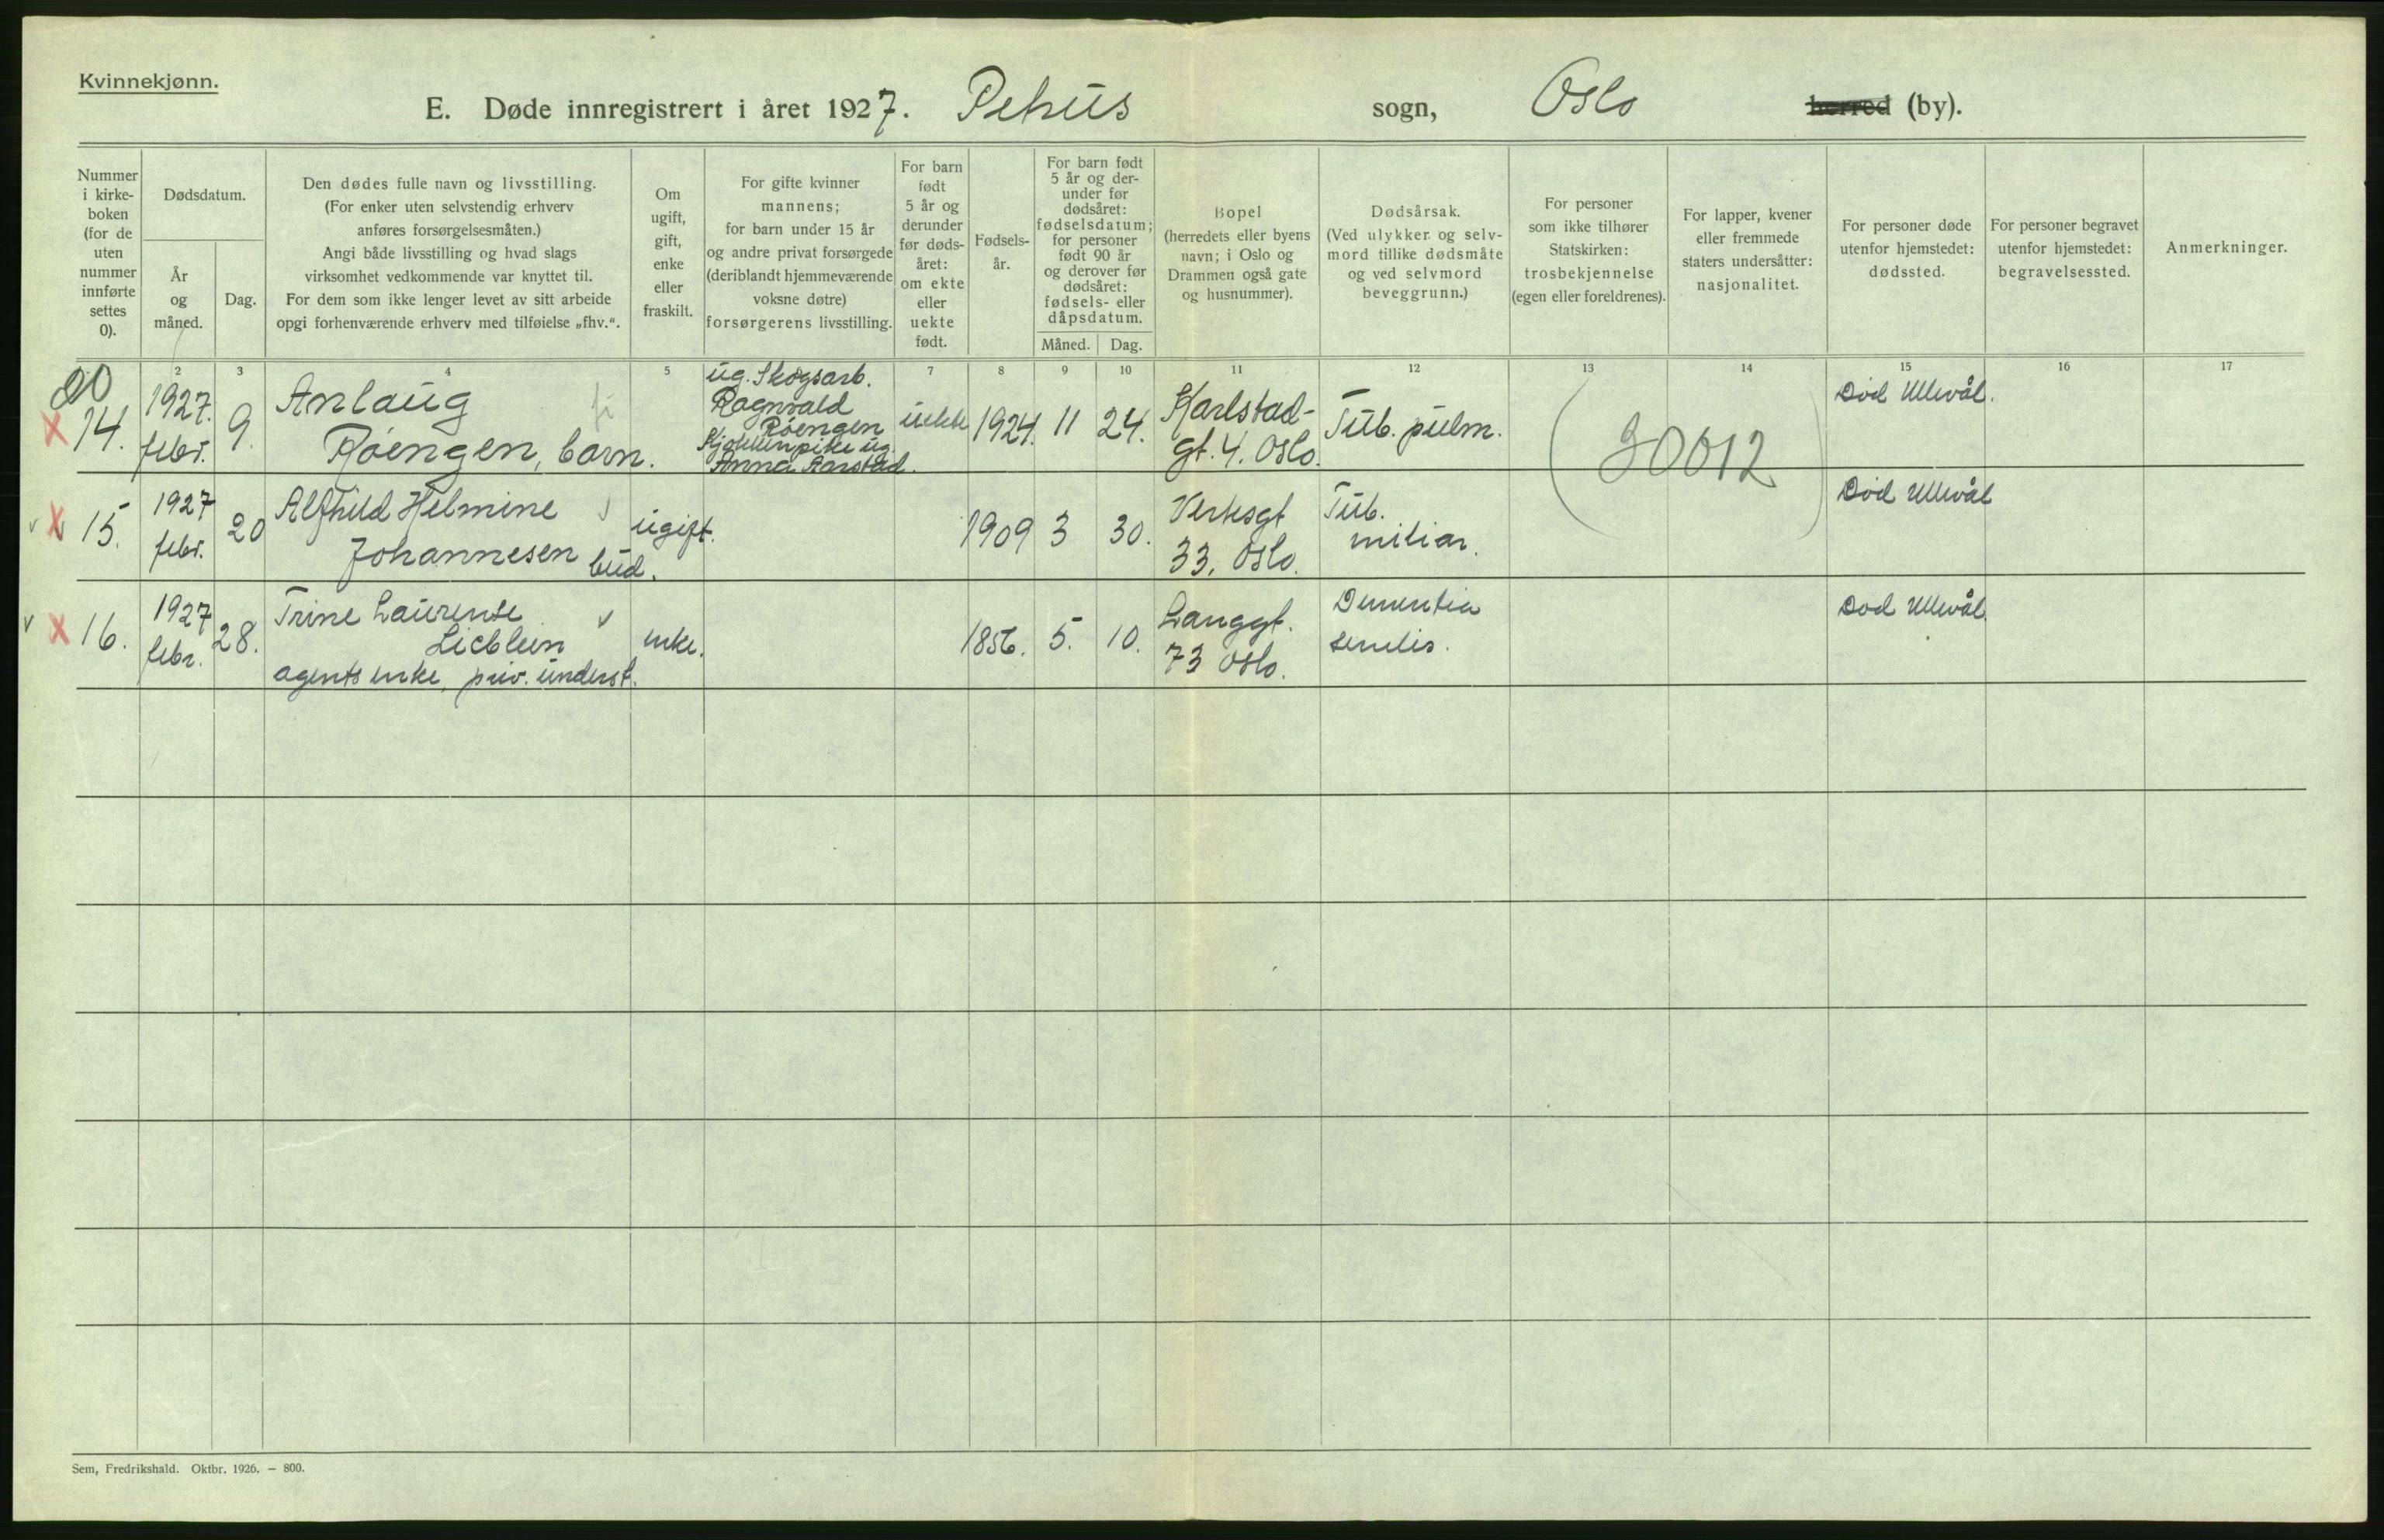 Kvinnekjønn.
E. Døde innregistrert i året 1927. Petrus sogn, Oslo herred (by).
Nummer
i kirke-
boken
(for de
uten
nummer
innførte
settes
0).
Dødsdatum.
År
og
måned.
Dag.
Den dødes fulle navn og livsstilling.
(For enker uten selvstendig erhverv
anføres forsørgelsesmåten.)
Angi både livsstilling og hvad slags
virksomhet vedkommende var knyttet til.
For dem som ikke lenger levet av sitt arbeide
opgi forhenværende erhverv med tilføielse „fhv.“.
Om
ugift,
gift,
enke
eller
fraskilt.
For gifte kvinner
mannens;
for barn under 15 år
og andre privat forsørgede
(deriblandt hjemmeværende
voksne døtre)
forsørgerens livsstilling.
For barn
født
5 år og
derunder
før døds-
året:
om ekte
eller
uekte
født.
Fødsels-
år.
For barn født
5 år og der-
under før
dødsåret:
fødselsdatum;
for personer
født 90 år
og derover før
dødsåret:
fødsels- eller
dåpsdatum.
Måned. Dag.
Bopel
(herredets eller byens
navn; i Oslo og
Drammen også gate
og husnummer).
Dødsårsak.
(Ved ulykker og selv-
mord tillike dødsmåte
og ved selvmord
beveggrunn.)
For personer
som ikke tilhører
Statskirken:
trosbekjennelse
(egen eller foreldrenes).
For lapper, kvener
eller fremmede
staters undersåtter:
nasjonalitet.
For personer døde
utenfor hjemstedet:
dødssted.
For personer begravet
utenfor hjemstedet:
begravelsessted.
Anmerkninger.
2 3 4 5 7 8 9 10 11 12 13 14 15 16 17
X 14.
1927.
febr.
9.
Anlaug
Røengen, barn.
ug. Skogsarb.
Ragnvald
Røengen
Kjøkkenpike ug.
Anna Aarstad.
uekte
1924. 11 24.
Karlstad-
gt. 4. Oslo.
Tub. pulm.
(20012)
Død Ullevål.
v X 15.
1927
febr.
20
Alfhild Helmine
Johannesen bud.
ugift.
1909 3 30.
Verksgt
33, Oslo.
Tub.
miliar.
Død Ullevål
v X 16.
1927
febr.
28.
Trine Laurense v
Lieblein
agents enke, priv. underst.
enke.
1856. 5. 10.
Langgt.
73 Oslo.
Dementia
senilis.
Død Ullevål
Sem, Fredrikshald. Oktbr. 1926. — 800.